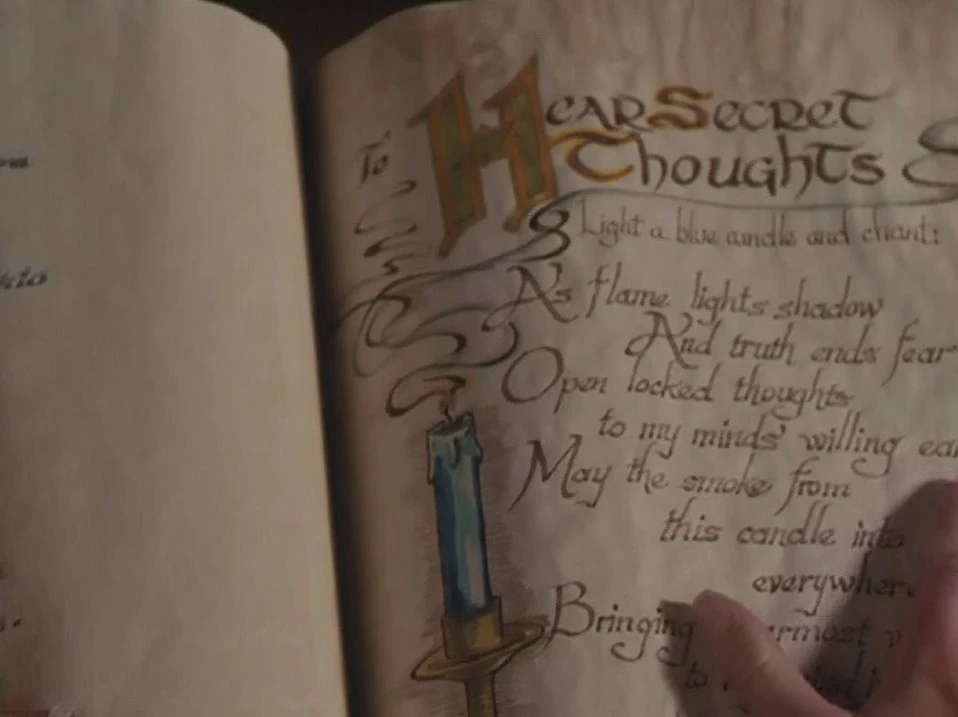 To
Hear Secret
Thoughts
Light a blue candle and chant:
As flame lights shadow
And truth ends fear
Open locked thoughts
to my minds' willing
May the smoke from
this candle into
Bringing
to